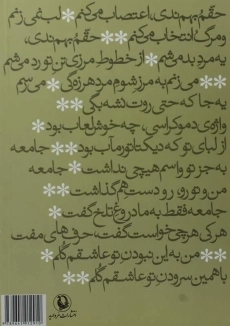 حقمُ بهم ندی، اعتصاب می‌کنم * لب نمی‌زنم
و مرگُ انتخاب می‌کنم * حقمُ بهم ندی،
یه مرد بد می‌شم * از خطوطِ مرزیِ تن تو رد می‌شم
* می‌زنم به مرز شومِ مردِ هرزگی * می‌رسم
یه جا که حتی روت نشه بگی **
واژه‌ی دموکراسی، چه خوش لعاب بود *
از لبای تو که دیکتاتور مآب بود * جامعه
به جز تو واسم هیچی نداشت * جامعه
من و تو رو، رو دست هم گذاشت **
جامعه فقط به ما دروغ تلخ گفت *
هر کی هر چی خواست گفت، حرف‌های مفت
** من به این نبودن تو عاشقم گلم *
با همین سرودن تو عاشقم گلم **
انتشارات مروارید